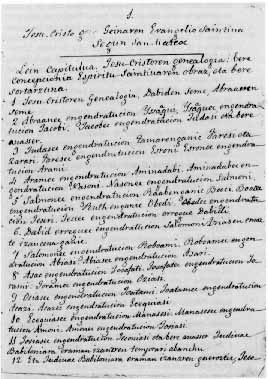 1.
Jesu-Cristo gure Ceinaren Evangelio Saindua
Segun San Matheo
Lein Capitulua. Jesu-Cristoren genealogia; bere
concepcionia Espiritu-Santiuaren obraz, eta bere
sortarzuna.
1 Jesu-Cristoren Genealogia, Dabiden seme, Abraamen
seme.
2 Abraanec engendratucion Ysaac, Ysaquec engendra-
tucion Jacobi, Jacobec engendratucion Judas eta bere
anaiac.
3 Judasec engendratucion Tamarenganic Phares eta
Zarari. Pharesec engendratucion Esroni Esronec engendra-
tucion Arani.
4 Aranec engendratucion Aminadabi. Aminadabec en-
gendratucion Nasoni. Nasonec engendratucion Salmoni.
5 Salmonec engendratucion Raabenganic Booz. Boozec
engendratucion Ruthenganic Obedi. Obedec engendratu-
cion Jessi. Jessec engendratucion erregue Dabidi.
6 Dabid erreguec engendratucion Salomoni Uriasen emaz-
te izanenaganic.
7 Salomonec engendratucion Roboami. Roboamec engen-
dratucion Abiasi. Abiasec engendratucion Asari.
8 Asac engendratucion Josafati. Josafatec engendratucion Jo-
rami. Joramec engendratucion Oziasi.
9 Oziasec engendratucion Joatami. Joatamec engendratucion
Acazi. Acazec engendratucion Ezequiasi.
10 Ezequiasec engendratucion Manassesi. Manassesec engendra-
tucion Amoni. Amonec engendratucion Josiasi.
11 Josiasec engendratucion Jeconias eta bere anaiac Judioac
Babiloniara eraman izanzren temporari
12 Eta Judioac Babiloniara eraman izanaren gueroztic, Jeco-